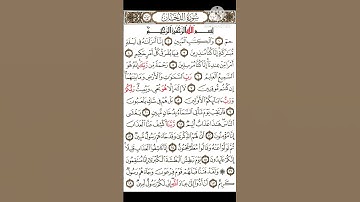 سُورَةُ الدُّخَانِ
بِسْمِ اللَّهِ الرَّحْمَٰنِ الرَّحِيمِ
حمٓ وَالْكِتَٰبِ الْمُبِينِ إِنَّا أَنزَلْنَٰهُ فِي لَيْلَةٍ
مُّبَٰرَكَةٍ إِنَّا كُنَّا مُنذِرِينَ فِيهَا يُفْرَقُ كُلُّ أَمْرٍ حَكِيمٍ
أَمْرًا مِّنْ عِندِنَا إِنَّا كُنَّا مُرْسِلِينَ رَحْمَةً مِّن رَّبِّكَ إِنَّهُ هُوَ
السَّمِيعُ الْعَلِيمُ رَبِّ السَّمَٰوَٰتِ وَالْأَرْضِ وَمَا بَيْنَهُمَا إِن
كُنتُم مُّوقِنِينَ لَا إِلَٰهَ إِلَّا هُوَ يُحْيِي وَيُمِيتُ رَبُّكُمْ
وَرَبُّ ءَابَائِكُمُ الْأَوَّلِينَ بَلْ هُمْ فِي شَكٍّ يَلْعَبُونَ
فَارْتَقِبْ يَوْمَ تَأْتِي السَّمَاءُ بِدُخَانٍ مُّبِينٍ يَغْشَى
النَّاسَ هَٰذَا عَذَابٌ أَلِيمٌ رَّبَّنَا اكْشِفْ عَنَّا الْعَذَابَ
إِنَّا مُؤْمِنُونَ أَنَّىٰ لَهُمُ الذِّكْرَىٰ وَقَدْ جَاءَهُمْ رَسُولٌ مُّبِينٌ
ثُمَّ تَوَلَّوْا عَنْهُ وَقَالُوا مُعَلَّمٌ مَّجْنُونٌ إِنَّا كَاشِفُوا الْعَذَابِ قَلِيلًا
إِنَّكُمْ عَائِدُونَ يَوْمَ نَبْطِشُ الْبَطْشَةَ الْكُبْرَىٰ إِنَّا مُنتَقِمُونَ
وَلَقَدْ فَتَنَّا قَبْلَهُمْ قَوْمَ فِرْعَوْنَ وَجَاءَهُمْ رَسُولٌ
كَرِيمٌ أَنْ أَدُّوا إِلَيَّ عِبَادَ اللَّهِ إِنِّي لَكُمْ رَسُولٌ أَمِينٌ